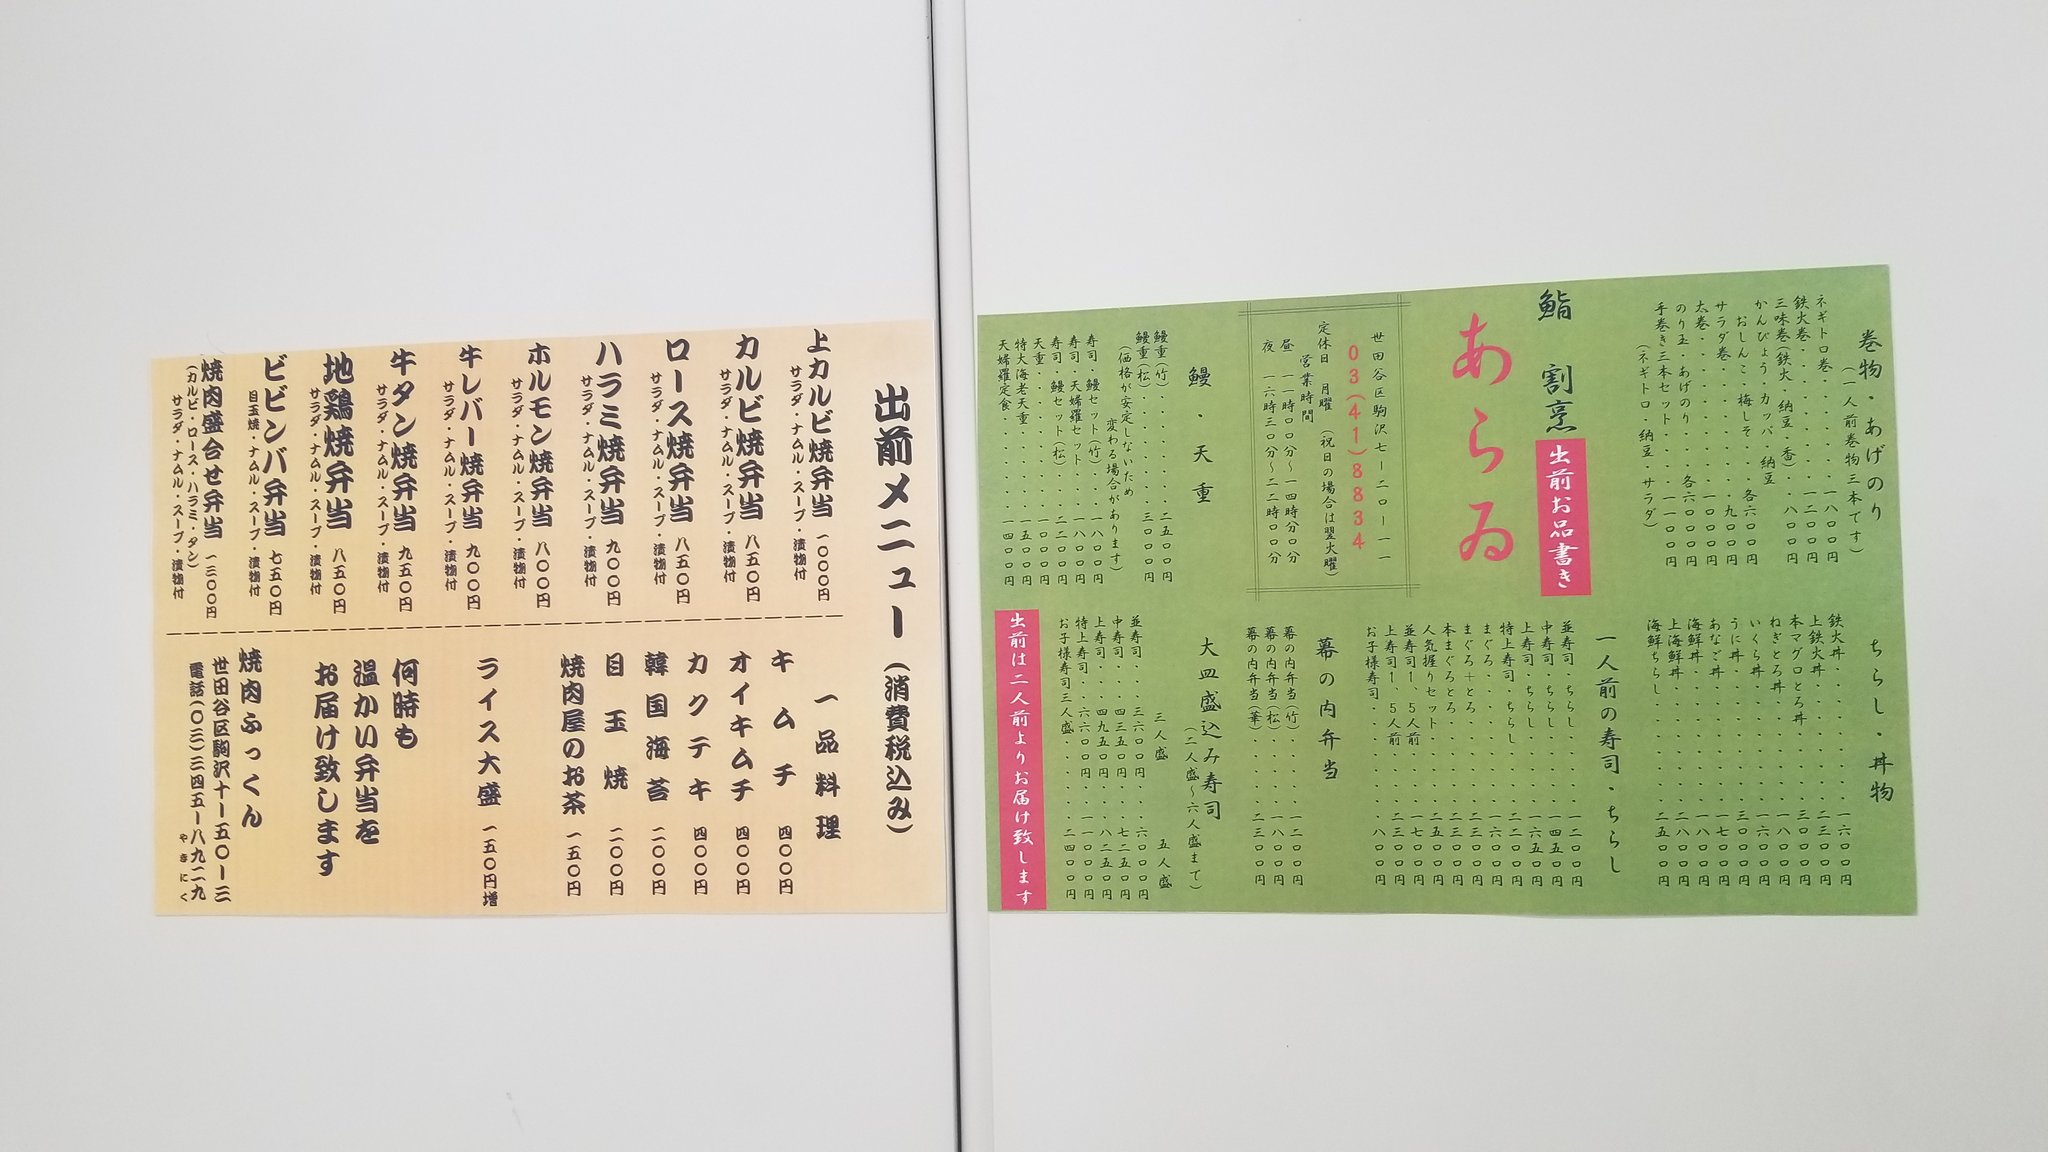 巻物・あげのり
(一人前巻物三本てす)
ネギトロ巻・・・・・・一八〇〇円
鉄火巻・・・・・・・・一二〇〇円
三味巻(鉄火・納豆・香)・・八〇〇円
かんぴょう・カッパ・納豆
おしんこ・梅しそ・・・各六〇〇円
サラダ巻・・・・・・・・九〇〇円
太巻・・・・・・・・・一〇〇〇円
のり玉・あげのり・・・各六〇〇円
手巻き三本セット・・・一一〇〇円
(ネギトロ 納豆・サラダ)
ちらし・丼物
鉄火丼・・・・・・・・一六〇〇円
上鉄火丼・・・・・・・二三〇〇円
本マグロとろ丼・・・・三〇〇〇円
ねぎとろ丼・・・・・・一八〇〇円
いくら丼・・・・・・・一六〇〇円
うに丼・・・・・・・・三〇〇〇円
あなご丼・・・・・・・一七〇〇円
海鮮丼・・・・・・・・一八〇〇円
上海鮮丼・・・・・・・二八〇〇円
海鮮ちらし・・・・・・二五〇〇円
鮨 割烹
出前お品書き
あらゐ
世田谷区駒沢七ー二〇ー一一
03(41)8834
定休日 月曜(祝日の場合は翌火曜)
営業時間
昼 一一時〇〇分〜一四時〇〇分
夜 一六時三〇分〜二二時〇〇分
一人前の寿司・ちらし
並寿司・ちらし・・・・一二〇〇円
中寿司・ちらし・・・・一四五〇円
上寿司・ちらし・・・・一六五〇円
特上寿司・ちらし・・・二二〇〇円
まぐろ・・・・・・・・一六〇〇円
まぐろ+とろ・・・・・二三〇〇円
本まぐろとろ・・・・・三〇〇〇円
人気握りセット・・・・二五〇〇円
並寿司1、5人前・・・一七〇〇円
上寿司1、5人前・・・二三〇〇円
お子様寿司・・・・・・・八〇〇円
幕の内弁当
幕の内弁当(竹)・・・一二〇〇円
幕の内弁当(松)・・・一八〇〇円
幕の内弁当(華)・・・二三〇〇円
鰻・天重
鰻重(竹)・・・・・・二五〇〇円
鰻重(松)・・・・・・三〇〇〇円
(価格が安定しないため
変わる場合があります)
寿司・鰻セット(竹)・一八〇〇円
寿司・天婦羅セット・・一八〇〇円
寿司・鰻セット(松)・二二〇〇円
天重・・・・・・・・・一〇〇〇円
特大海老天重・・・・・一五〇〇円
天婦羅定食・・・・・・一四〇〇円
大皿盛込み寿司
(二人盛〜六人盛まて)
三人盛 五人盛
並寿司・・三六〇〇円・・六〇〇〇円
中寿司・・四三五〇円・・七二五〇円
上寿司・・四九五〇円・・八二五〇円
特上寿司・六六〇〇円・一一〇〇〇円
お子様寿司三人盛・・・・二四〇〇円
出前は二人前よりお届け致します
出前メニュー(消費税込み)
上カルビ焼弁当 一〇〇〇円
サラダ・ナムル・スープ・漬物付
カルビ焼弁当 八五〇円
サラダ・ナムル・スープ・漬物付
ロース焼弁当 八五〇円
サラダ・ナムル・スープ・漬物付
ハラミ焼弁当 九〇〇円
サラダ・ナムル・スープ・漬物付
ホルモン焼弁当 八〇〇円
サラダ・ナムル・スープ・漬物付
牛レバー焼弁当 九〇〇円
サラダ・ナムル・スープ・漬物付
牛タン焼弁当 九五〇円
サラダ・ナムル・スープ・漬物付
地鶏焼弁当 八五〇円
サラダ・ナムル・スープ・漬物付
ビビンバ弁当 七五〇円
目玉焼・ナムル・スープ・漬物付
焼肉盛合せ弁当 一三〇〇円
(カルビ・ロース・ハラミ・タン)
サラダ・ナムル・スープ・漬物付
一品料理
キムチ 四〇〇円
オイキムチ 四〇〇円
カクテキ 四〇〇円
韓国海苔 二〇〇円
目玉焼 二〇〇円
焼肉屋のお茶 一五〇円
ライス大盛 一五〇円増
何時も
温かい弁当を
お届け致します
焼肉ふっくん
世田谷区駒沢十ー五〇ー三
電話(〇三)三四五ー八九二九
やきにく